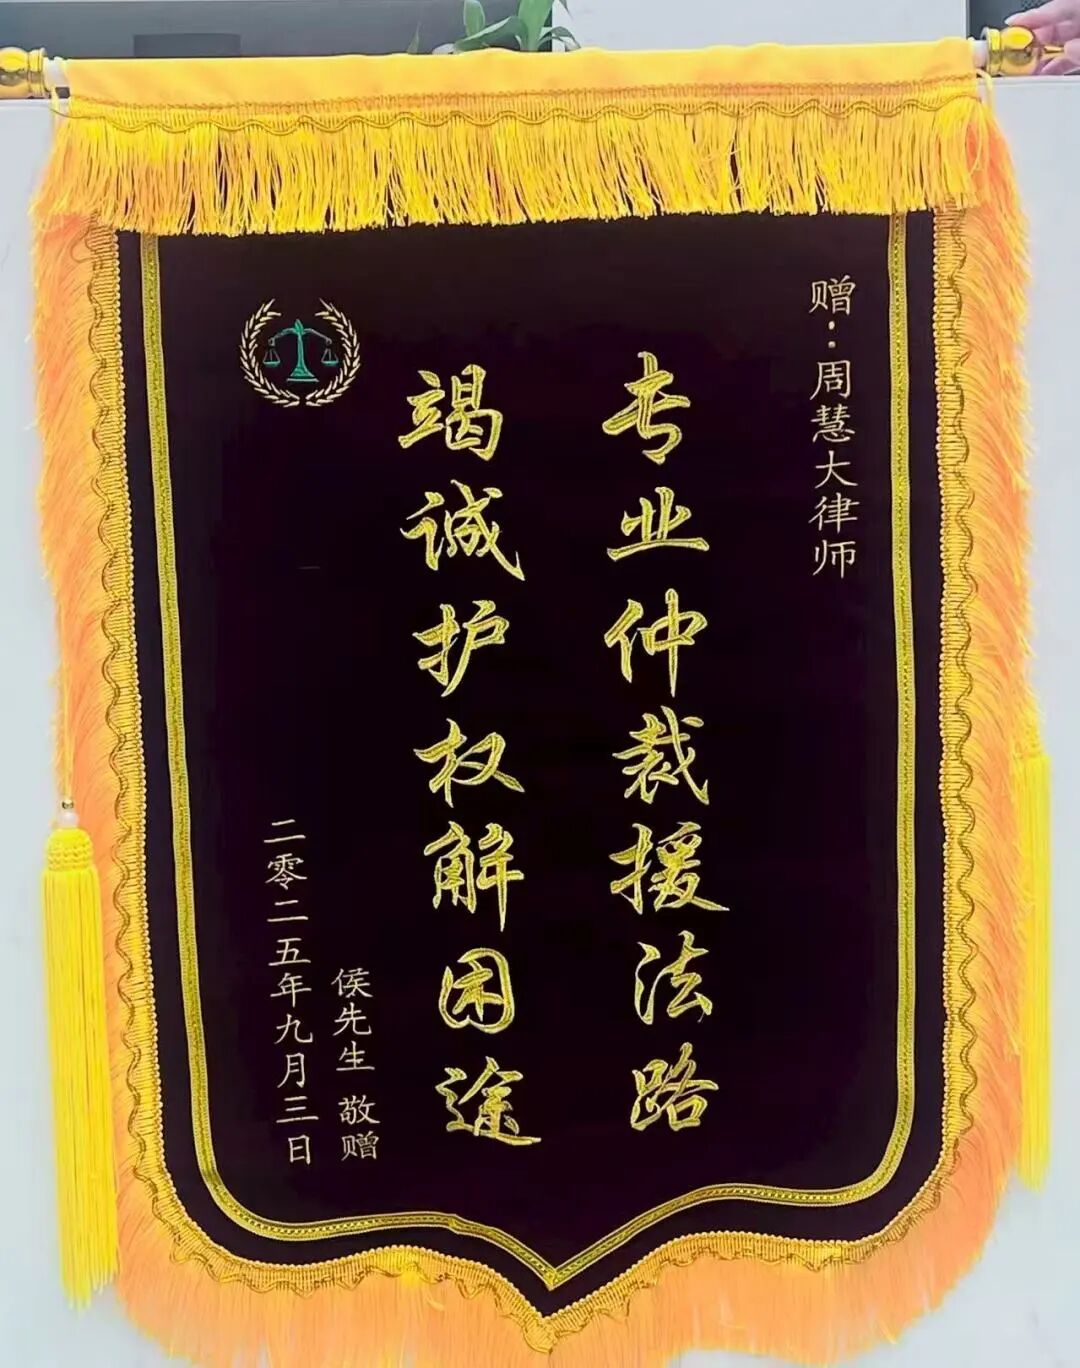 赠：周慧大律师
专业仲裁援法路
竭诚护权解困途
侯先生 敬赠
二零二五年九月三日